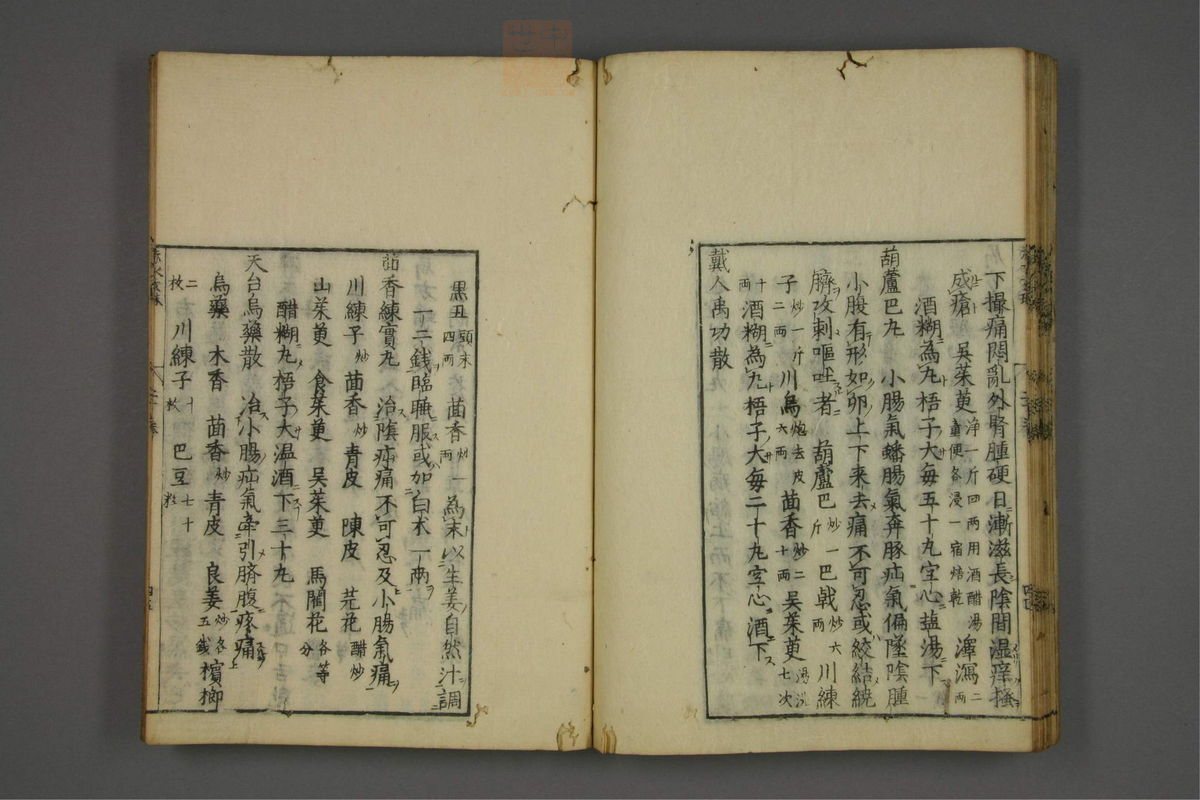 下撮痛悶亂外腎腫硬日漸滋長陰間湿痒搔
成瘡　吳茱萸淨一斤四两用酒醋湯童便各浸一宿焙乾　澤瀉二两
酒糊為丸梧子大每五十丸空心盐湯下
葫蘆巴丸　小腸氣蟠腸氣奔豚疝氣偏墜陰腫
小腹有形如卵上下来去痛不可忍或絞結繞
臍攻刺嘔吐者　葫蘆巴炒一斤　巴戟炒六两　川練
子炒一斤二两　川烏炮去皮六两　茴香炒二十两　吳茱萸湯洗七次
十两　酒糊為丸梧子大每二十丸空心酒下
戴人禹功散
黒丑頭末四两　茴香炒一两　為末以生姜自然汁調
一二錢臨睡服或加白木一两
茴香練實丸　治陰疝痛不可忍及小腸氣痛
川練子炒　茴香炒　青皮　陳皮　芫花醋炒
山茱萸　食茱萸　吳茱萸　馬藺花各等分
醋糊丸梧子大温酒下三十丸
天台烏藥散　治小腸疝氣牽引臍腹疼痛
烏藥　木香　茴香炒　青皮　良姜炒各五錢　檳榔
二枚　川練子十枚　巴豆七十粒